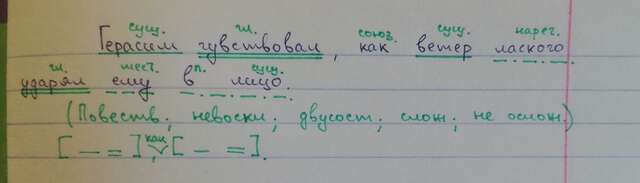 сущ. гл. союз. сущ. нареч.
Герасим чувствовал, как ветер лаского
гл. мест. п. сущ.
ударял ему в лицо.
(Повеств.; невоскл; двусост; слож; не ослож.)
[ — = ], как [ — = ].